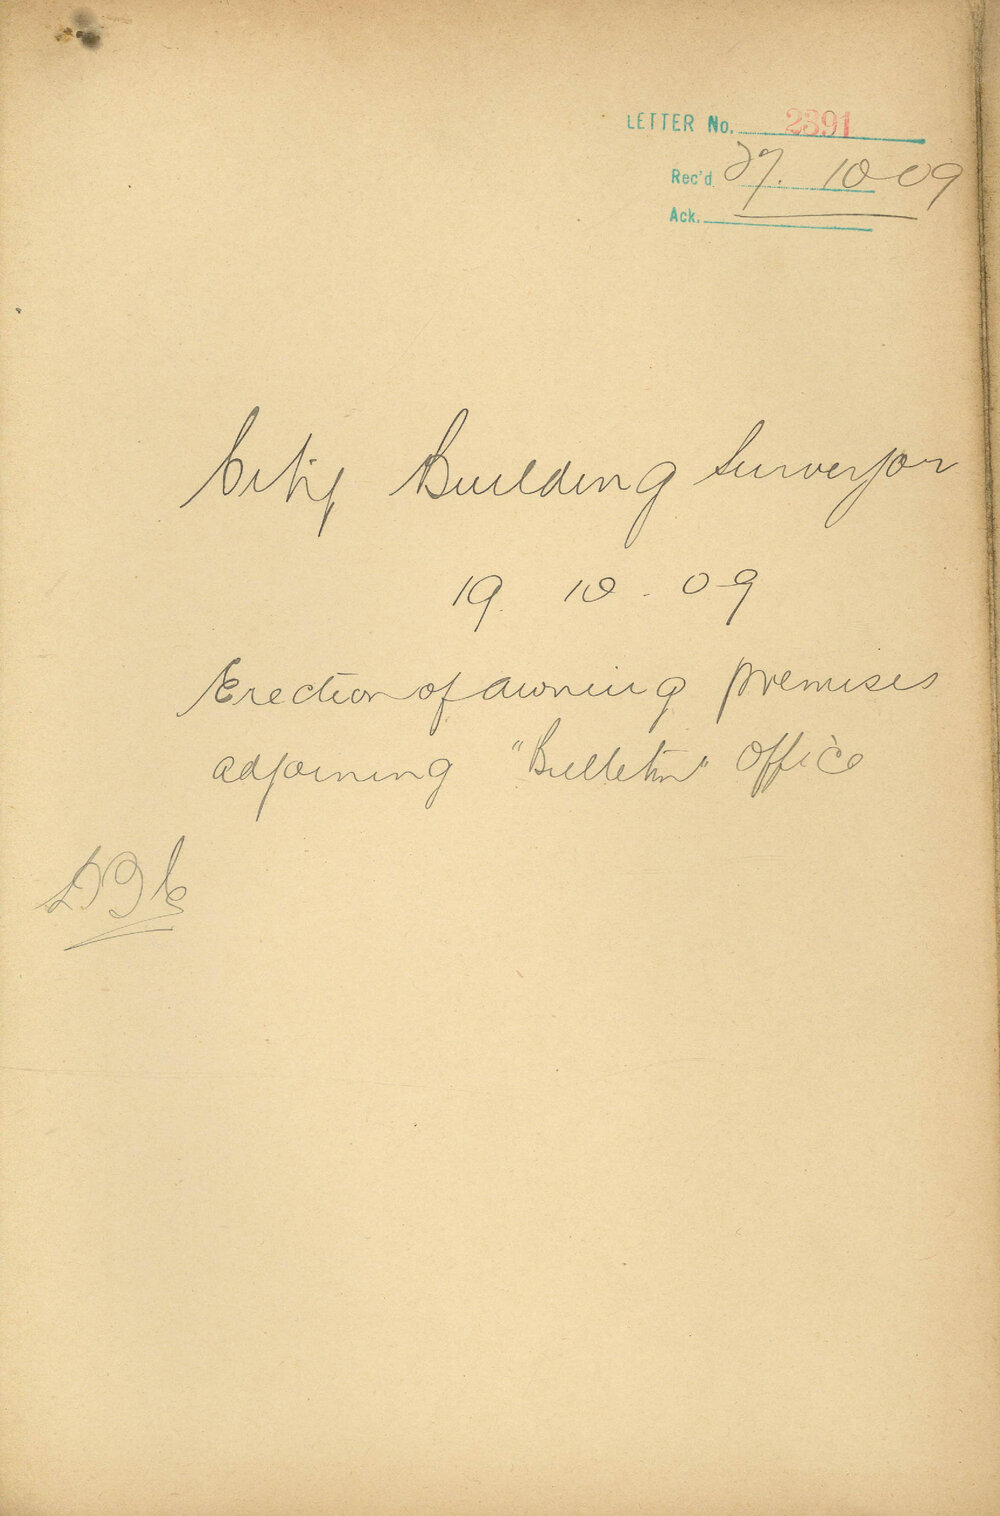 LETTER No. 2391
Rec'd 27. 10-09
Ack.
City Building Surveyor
19. 10. 09
Erection of awning premises
adjoining "Bulletin" Office